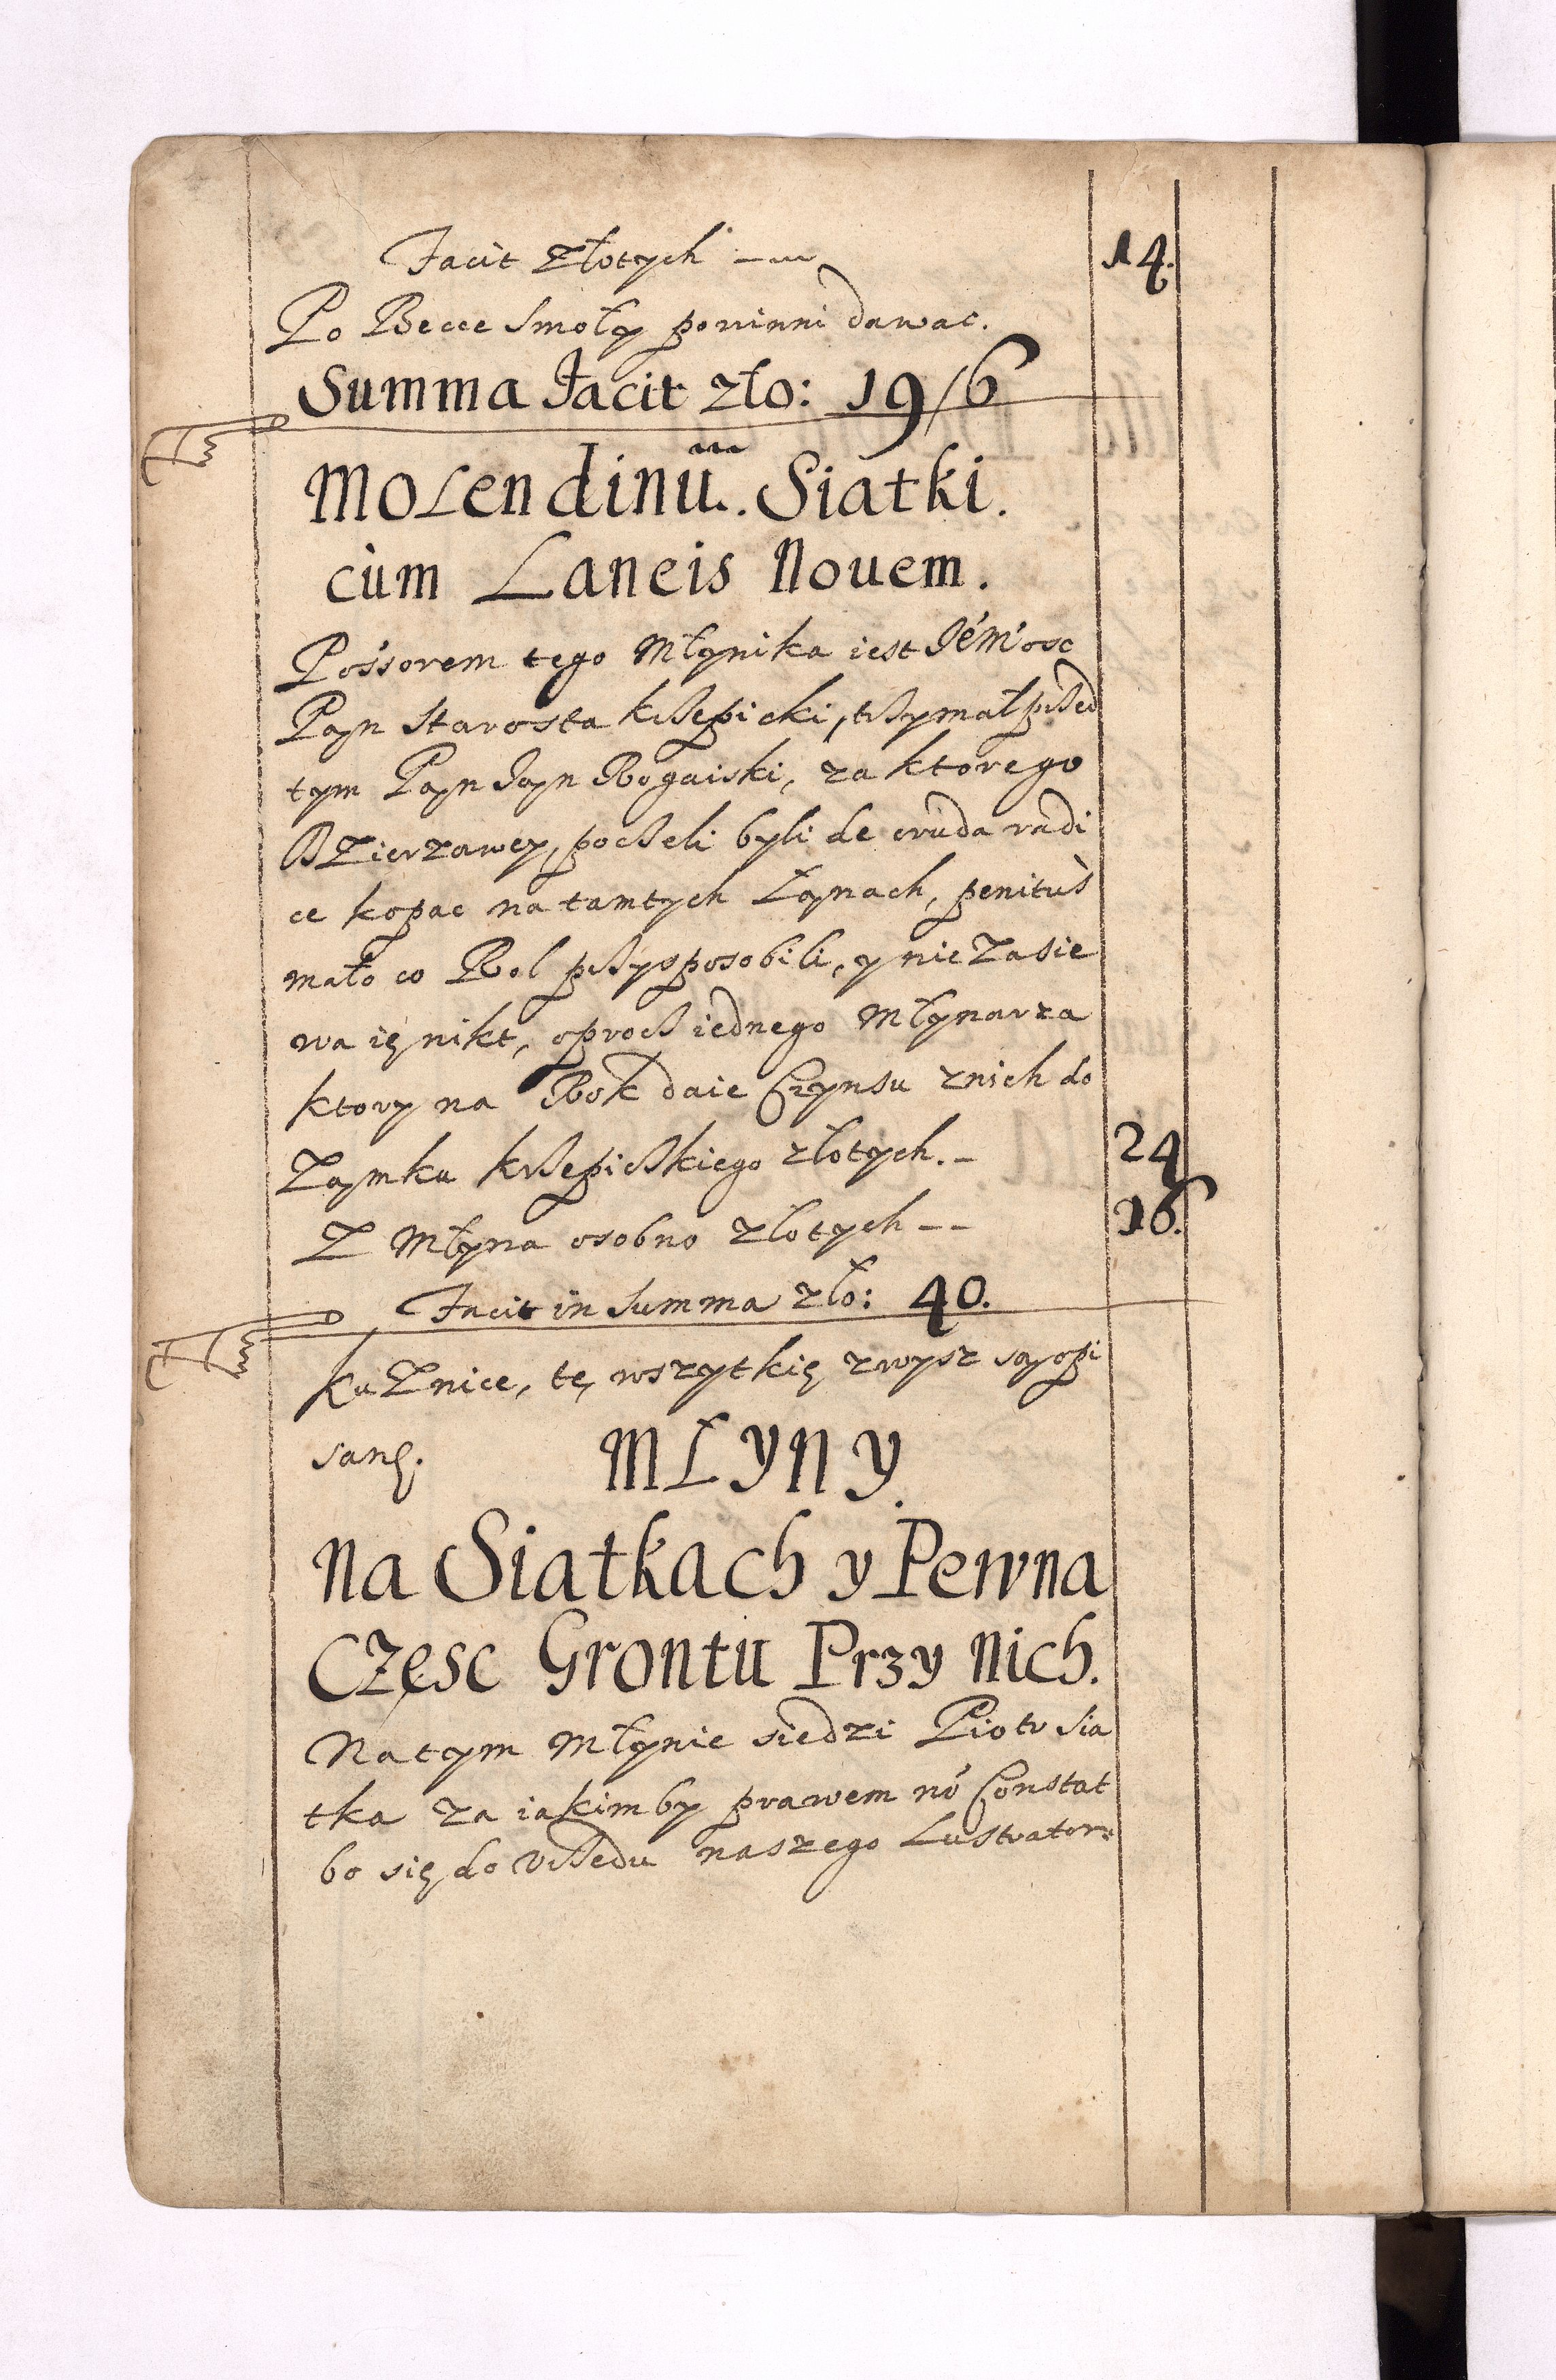 Facit Złotych — 14.
Po Becce Smoły powinni dawac.
Summa Facit zło: 19/6
Molendinũ. Siatki.
cùm Laneis Nouem.
Possorem tego Młynika iest Jem̃osc
Pan Starosta krzepicki, trzymał przed
tym Pan Jan Rogaiski, za ktorego
Dzierzawey, poczeli byli de cruda radi
ce kopac na tamtych Łanach, penitus
mało co Rol przysposobili, y nie zasie
wa ię nikt, oprocz iednego Młynarza
ktory na Rok daie Czynsu znich do
Zamku krzepickiego złotych. — 24
Z Młyna osobno złotych — — 16.
Facit in Summa zło: 40.
kuznice, tę wszytkię zwysz są opi
sanę.
Młyny
na Siatkach y Pewna
Częsc Grontu Przy nich.
Na tym Młynie siedzi Piotr Sia
tka za iakimby prawem nõ Constat
bo się do Vrzedu naszego Lustrator: